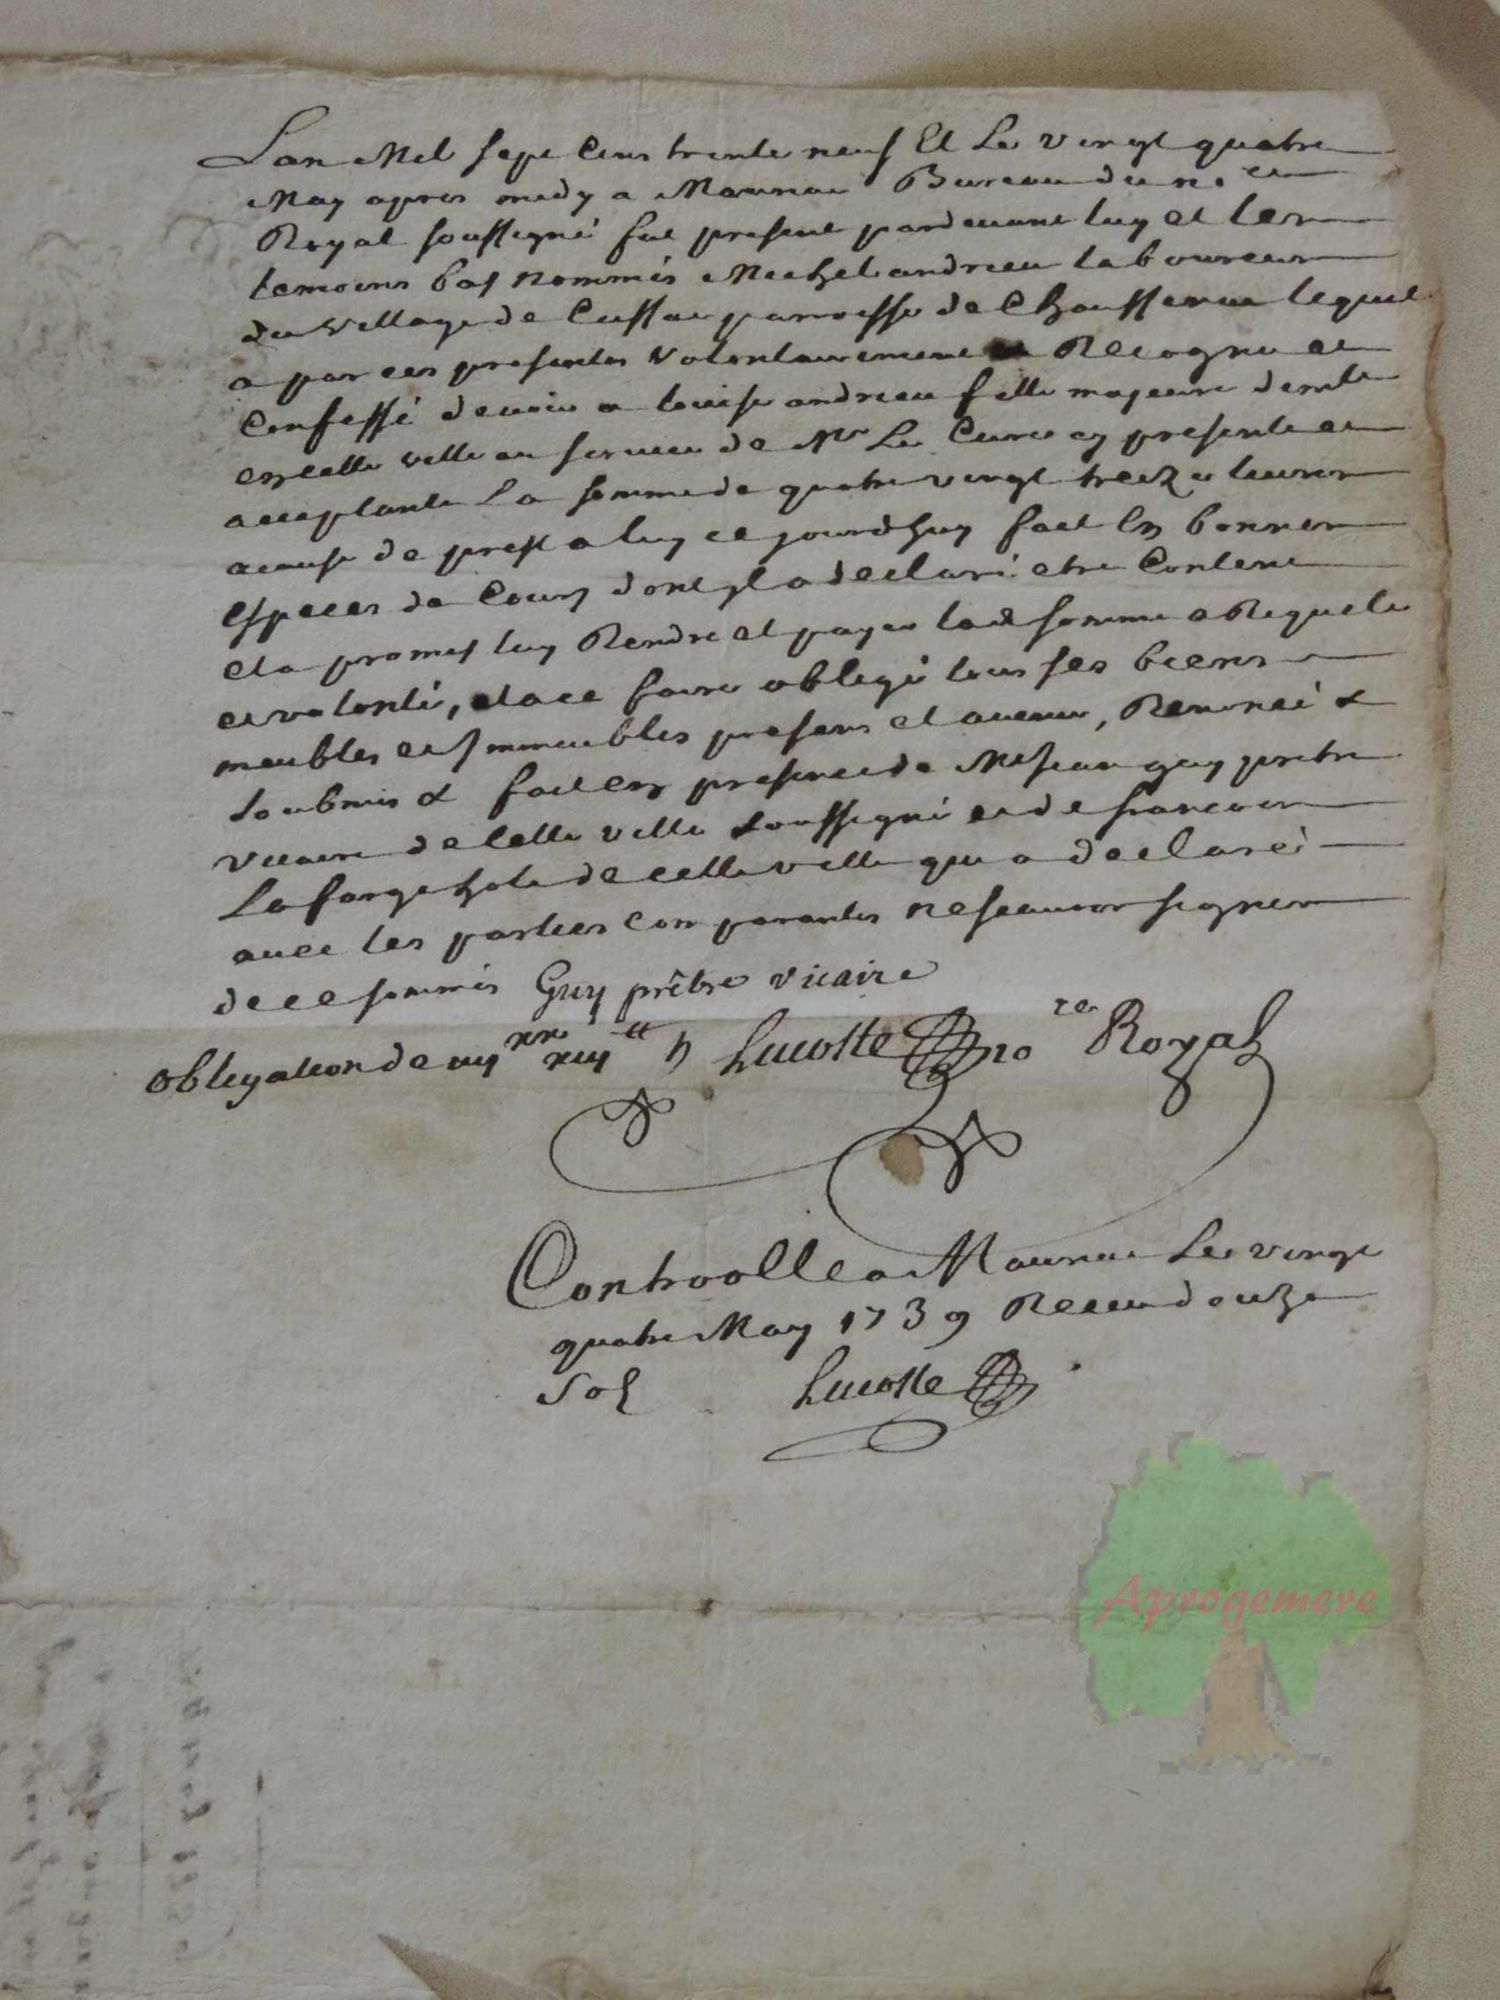 Lan Mil sept Cens trente neuf Et Le vingt quatre
May apres midy a Mauriac Bureau du n.re
Royal soussigné fut present pardevant luy et les
temoins bas nommés Michel andrieu laboureur
du village de Cussac parroisse de Chaussenac lequel
a par ces presentes volontairement Recognu et
Confessé devoir a louise andrieu fille majeure demte
en cette ville au service de Mr Le Curé cy presente et
acceptante La somme de quatre vingt treize livres
a cause de prest a luy ce jourdhuy fait En bonnes
especes de Cours dont yl a declaré etre Content
et a promis luy Rendre et payer lad somme a Requete
et volonté, et a ce faire obligé tous ses biens
meubles et jmmeubles presens et avenir, Renoncé &
soubmis & fait en presence de Me jean guy pretre
vicaire de cette ville soussigné et de francois
Laforge hote de cette ville qui a declaré
avec les parties comparantes ne scavoir signer
de ce sommés Guy prêtre vicaire
obligation de iiij xx xiij tt h Lacoste no re Royal
Controllé a Mauriac Le vingt
quatre May 1739 Receu douze
sols Lacoste
Aprogemere